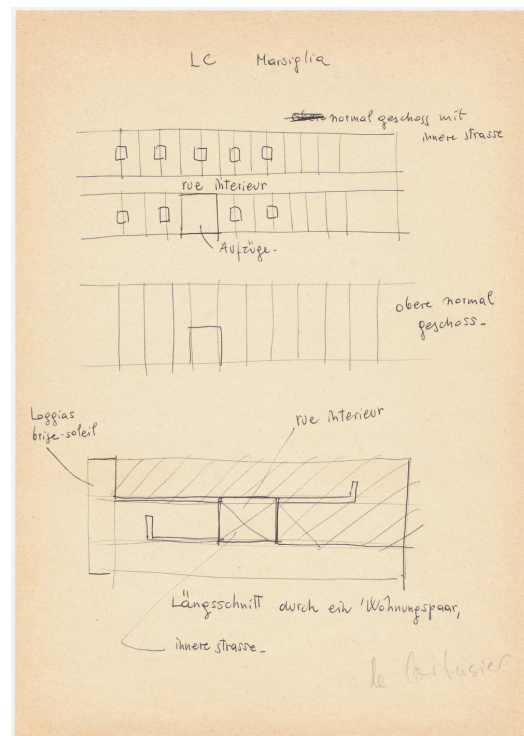 LC Marsiglia
normal geschoss mit
innere strasse
rue interieur
Aufzüge.
obere normal
geschoss_
Loggias
brise-soleil
rue interieur
Längsschnitt durch ein Wohnungspaar,
innere strasse_
le Corbusier